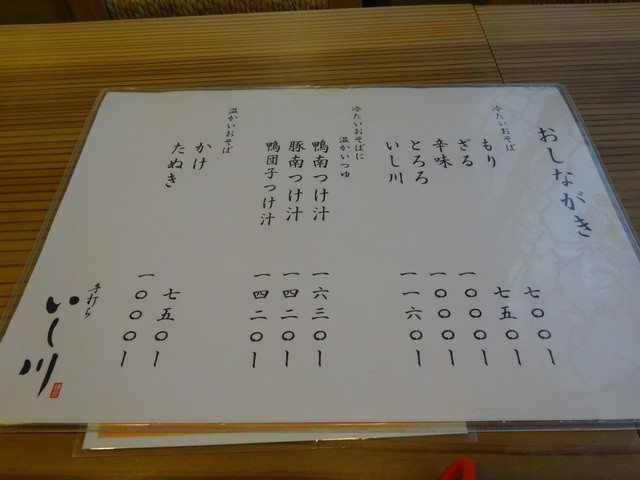 おしながき
冷たいおそば
もり 七〇〇ー
ざる 七五〇ー
辛味 一〇〇〇ー
とろろ 一〇〇〇ー
いし川 一一六〇ー
冷たいおそばに
温かいつゆ
鴨南つけ汁 一六三〇ー
豚南つけ汁 一四二〇ー
鴨団子つけ汁 一四二〇ー
温かいおそば
かけ 七五〇ー
たぬき 一〇〇〇ー
手打ち
いし川